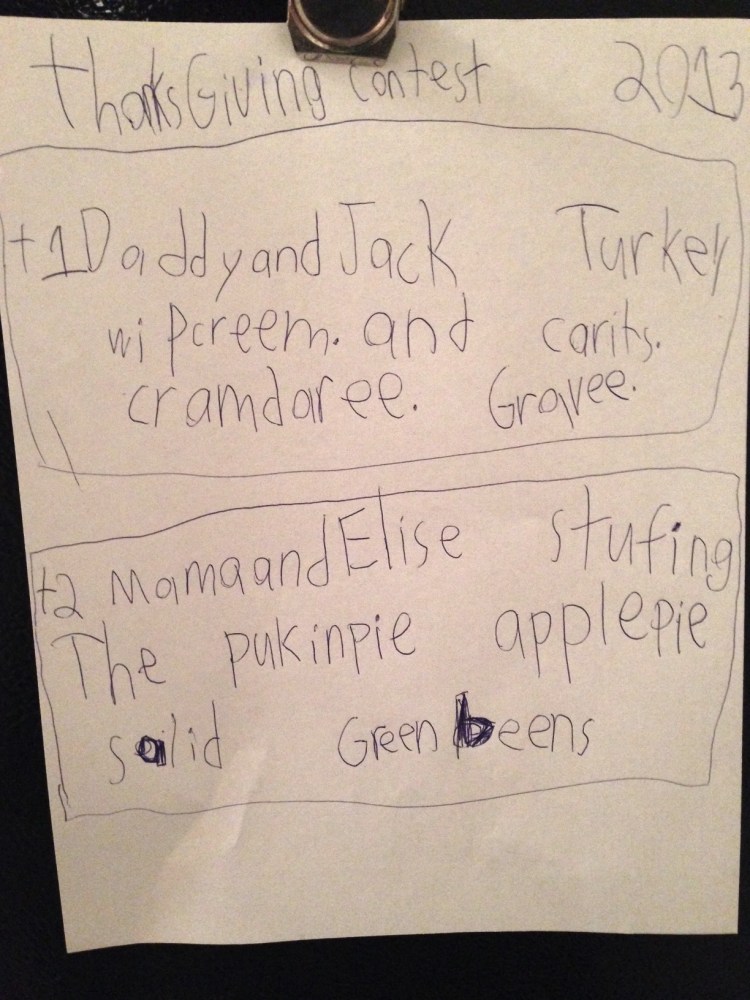 thanksGiving contest 2013
t1 Daddy and Jack Turkey
wiPcreem. and carits.
cramdaree. Gravee.
t2 Mama and Elise stufing
The pukinpie applepie
salid Green beens